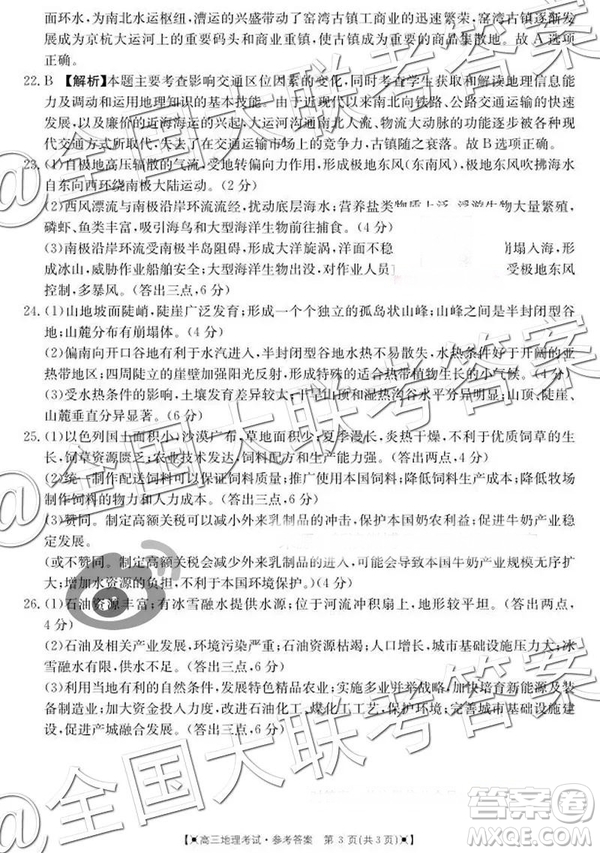 而环水，为南北水运枢纽，漕运的兴盛带动了窑湾古镇工商业的兴盛与繁荣，窑湾古镇逐渐发展
成为京杭大运河上的重要码头和商业重镇，成为重要的商品集散地。故A选项
正确。
22. B 【解析】本题主要考查影响交通区位因素的变化，同时考查学生获取和解读地理信息能
力及调动和运用地理知识的基本技能。由于近现代以来南北向铁路、公路交通运输的快速
发展，以及廉价的近海海运的兴起，大运河沟通南北人流、物流大动脉的功能逐渐被各种现
代交通方式所取代，失去了在交通运输市场上的竞争力，古镇逐渐衰落。故B选项正确。
23. (1)自极地高压辐散的气流，受地转偏向力作用，形成极地东风(东南风)，极地东风吹拂海水
自东向西环绕南极大陆运动。(2分)
(2)西风漂流与南极沿岸环流流经，扰动底层海水；营养盐类物质上泛，浮游生物大量繁殖，
磷虾、鱼类丰富，吸引海鸟和大型海洋生物前往捕食。(4分)
(3)南极沿岸环流受南极半岛阻碍，形成大洋旋涡，洋面不稳 崩塌入海，形
成冰山，威胁作业船舶安全；大型海洋生物出没，对作业人员 受极地东风
控制，多暴风。(答出三点，6分)
24. (1)山地坡面陡峭，陡崖广泛发育；形成一个个独立的孤岛状山峰；山峰之间为半封闭型谷
地；山麓分布有崩塌体。(4分)
(2)偏南向开口谷地，有利于水汽进入，但半封闭型谷地水汽不易散失，水热条件好于同纬度的亚
热带地区；四周陡立的崖壁加强阳光反射，形成特殊的适合热带植物生长的小气候。(4分)
(3)受水热条件的影响，土壤发育差异较大，干旱山顶和湿热沟谷水平分异明显；山顶、陡崖、
山麓垂直分异显著。(6分)
25. (1)以色列国土面积小，沙漠广布，草地面积少；夏季漫长，炎热干燥，不利于优质饲草的生
长，饲草资源匮乏；农业技术发达，饲料加工技术先进。(答出两点，4分)
(2)统一制作配送饲料可以保证饲料质量；推广使用本国饲料；降低饲料生产成本；降低牧场
制作饲料的物力和人力成本。(6分)
(3)赞同。制定高额关税可以减小外来乳制品的冲击，保护本国奶农利益；促进牛奶产业稳定
发展。
(或不赞同。制定高额关税，减少外来乳制品的进入，可能会导致本国牛奶产业规模无序扩
大；增加水资源的负担；不利于本国环境保护。)(4分)
26. (1)石油资源丰富；有冰雪融水水源；位于河流冲积扇上，地形较平坦。(答出两点，
4分)
(2)石油及相关产业发展，环境污染严重；石油资源枯竭；人口增长，城市基础设施压力大；冰
雪融水有限。(答出三点，6分)
(3)利用自然景观，发展旅游业，实施多产业并举战略，增加就业；扶持创新新能源开发及装
备制造；加大资金投入力度，改进石油化工、煤化工工艺，保护环境；完善城市基础设施建
设，促进产城融合发展。(答出三点，6分)
【高三地理考试·参考答案 第3页(共3页)】
@全国大联考答案